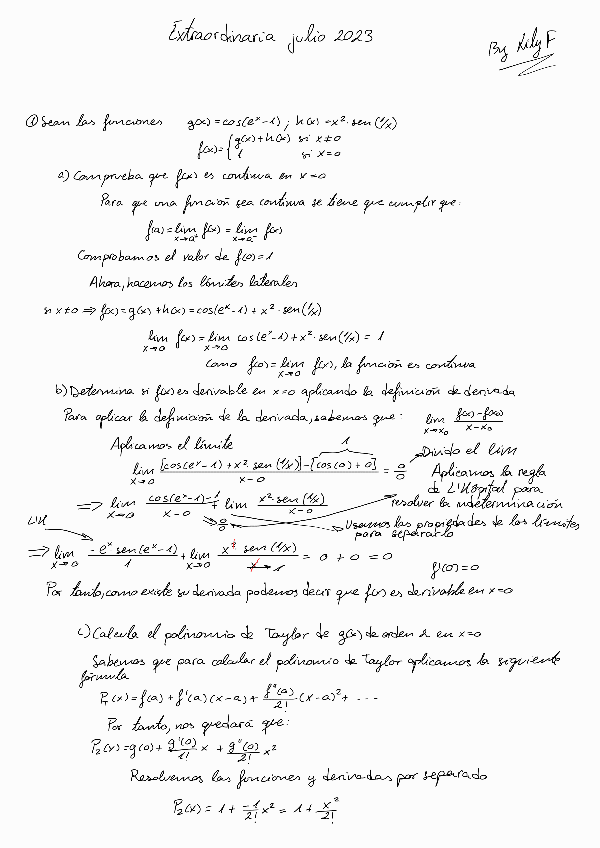 Extraordinaria julio 2023
By Lily F
① Sean las funciones g(x) = cos(eˣ-1) ; h(x) = x²·sen(1/x)
f(x) = { g(x)+h(x) si x≠0
1 si x=0
a) Comprueba que f(x) es continua en x=0
Para que una función sea continua se tiene que cumplir que:
f(a) = lim x→a⁺ f(x) = lim x→a⁻ f(x)
Comprobamos el valor de f(0)=1
Ahora, hacemos los límites laterales
si x≠0 ⇒ f(x) = g(x) + h(x) = cos(eˣ-1) + x²·sen(1/x)
lim x→0 f(x) = lim x→0 cos(eˣ-1) + x²·sen(1/x) = 1
Como f(0) = lim x→0 f(x), la función es continua
b) Determina si f(x) es derivable en x=0 aplicando la definición de derivada
Para aplicar la definición de la derivada, sabemos que: lim x→x₀ f(x)-f(x₀) / x-x₀
Aplicamos el límite
1
Divido el lim
lim x→0 [cos(eˣ-1) + x²·sen(1/x)] - [cos(0)+0] / x-0 = 0/0
Aplicamos la regla
de L'Hôpital para
resolver la indeterminación
⇒ lim x→0 cos(eˣ-1)-1 / x-0 + lim x→0 x²·sen(1/x) / x-0
0/0
Usamos las propiedades de los límites
para separarlo
L'H
⇒ lim x→0 -eˣ sen(eˣ-1) / 1 + lim x→0 x² sen(1/x) / x → 1 = 0 + 0 = 0
f'(0)=0
Por tanto, como existe su derivada podemos decir que f(x) es derivable en x=0
c) Calcula el polinomio de Taylor de g(x) de orden 2 en x=0
Sabemos que para calcular el polinomio de Taylor aplicamos la siguiente
fórmula
P₁(x) = f(a) + f'(a)(x-a) + f''(a)/2! (x-a)² + ...
Por tanto, nos quedará que:
P₂(x) = g(0) + g'(0)/1! x + g''(0)/2! x²
Resolvemos las funciones y derivadas por separado
P₂(x) = 1 + -1/2! x² = 1 + x²/2!